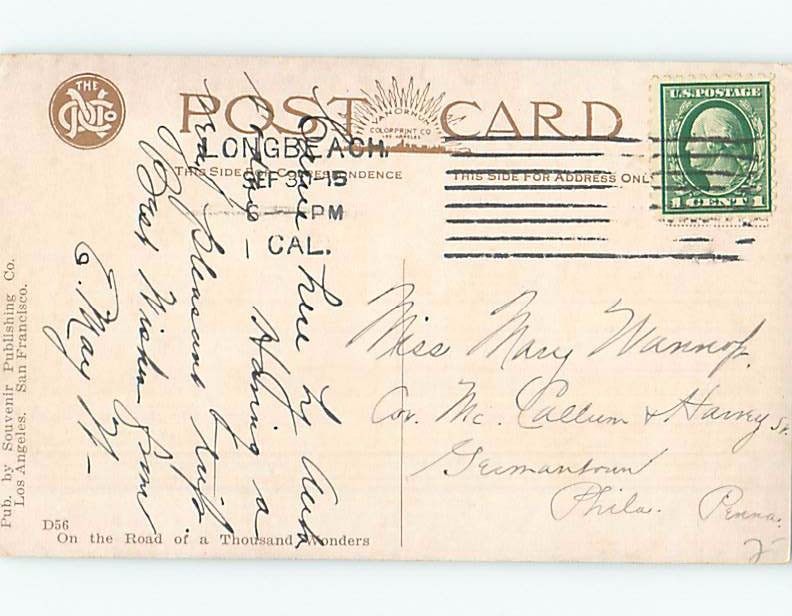 THE
N Co
POST CARD
VAN ORNUM
COLORPRINT CO
LOS ANGELES
U.S. POSTAGE
1 CENT 1
LONG BEACH,
SEP 3 -15
6 PM
CAL.
THIS SIDE FOR CORRESPONDENCE
THIS SIDE FOR ADDRESS ONLY
Came here by Auto
Having a
very pleasant trip
Best Wishes from
E. May W-
Miss Mary Wannop.
Cor. Mc. Callum & Harvey Sr.
Germantown
Phila. Penna.
Pub. by Souvenir Publishing Co.
Los Angeles. San Francisco.
D56
On the Road of a Thousand Wonders